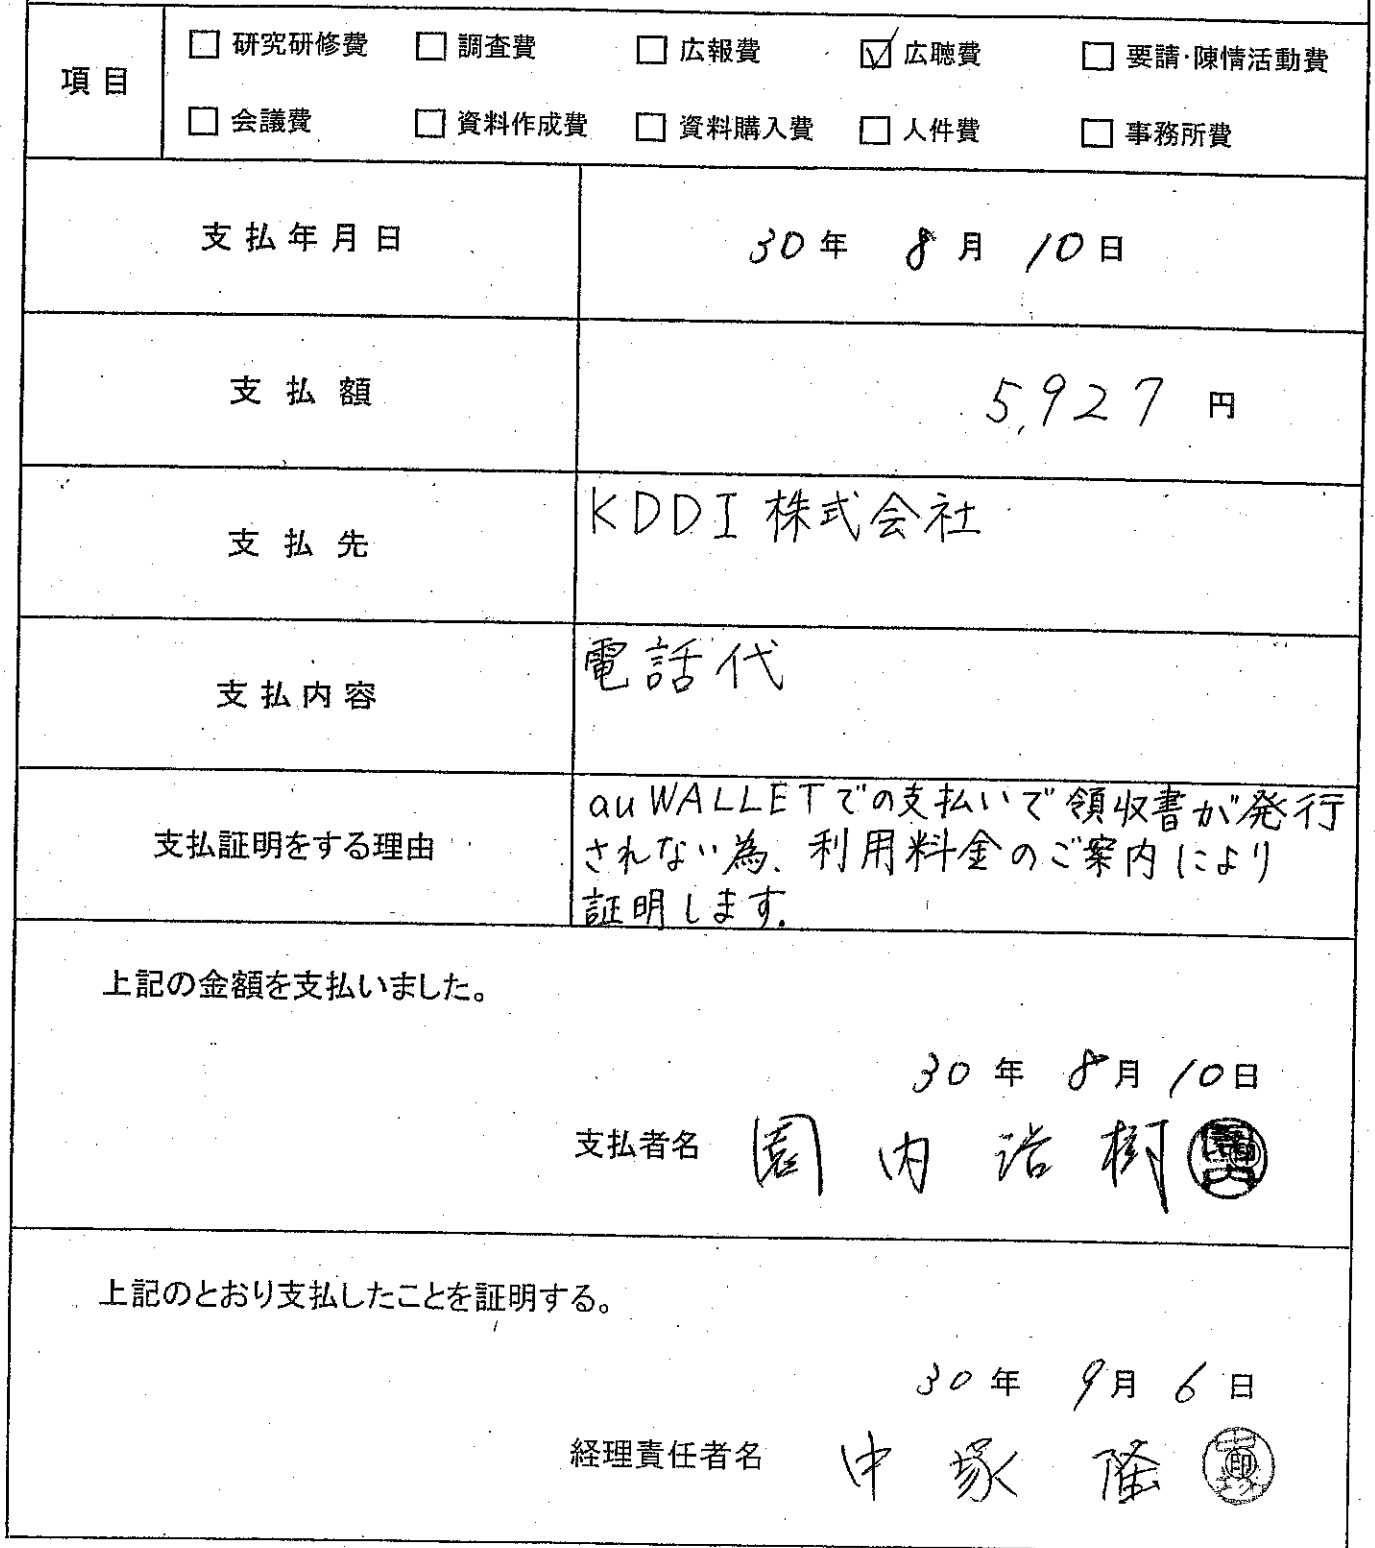 項目
□ 研究研修費 □ 調査費 □ 広報費 ☑ 広聴費 □ 要請・陳情活動費
□ 会議費 □ 資料作成費 □ 資料購入費 □ 人件費 □ 事務所費
支払年月日 30年 8月 10日
支払額 5,927 円
支払先 KDDI株式会社
支払内容 電話代
支払証明をする理由
au WALLETでの支払いで領収書が発行
されない為、利用料金のご案内により
証明します。
上記の金額を支払いました。
30年 8月 10日
支払者名 園内浩樹
上記のとおり支払したことを証明する。
30年 9月 6日
経理責任者名 中塚隆 印